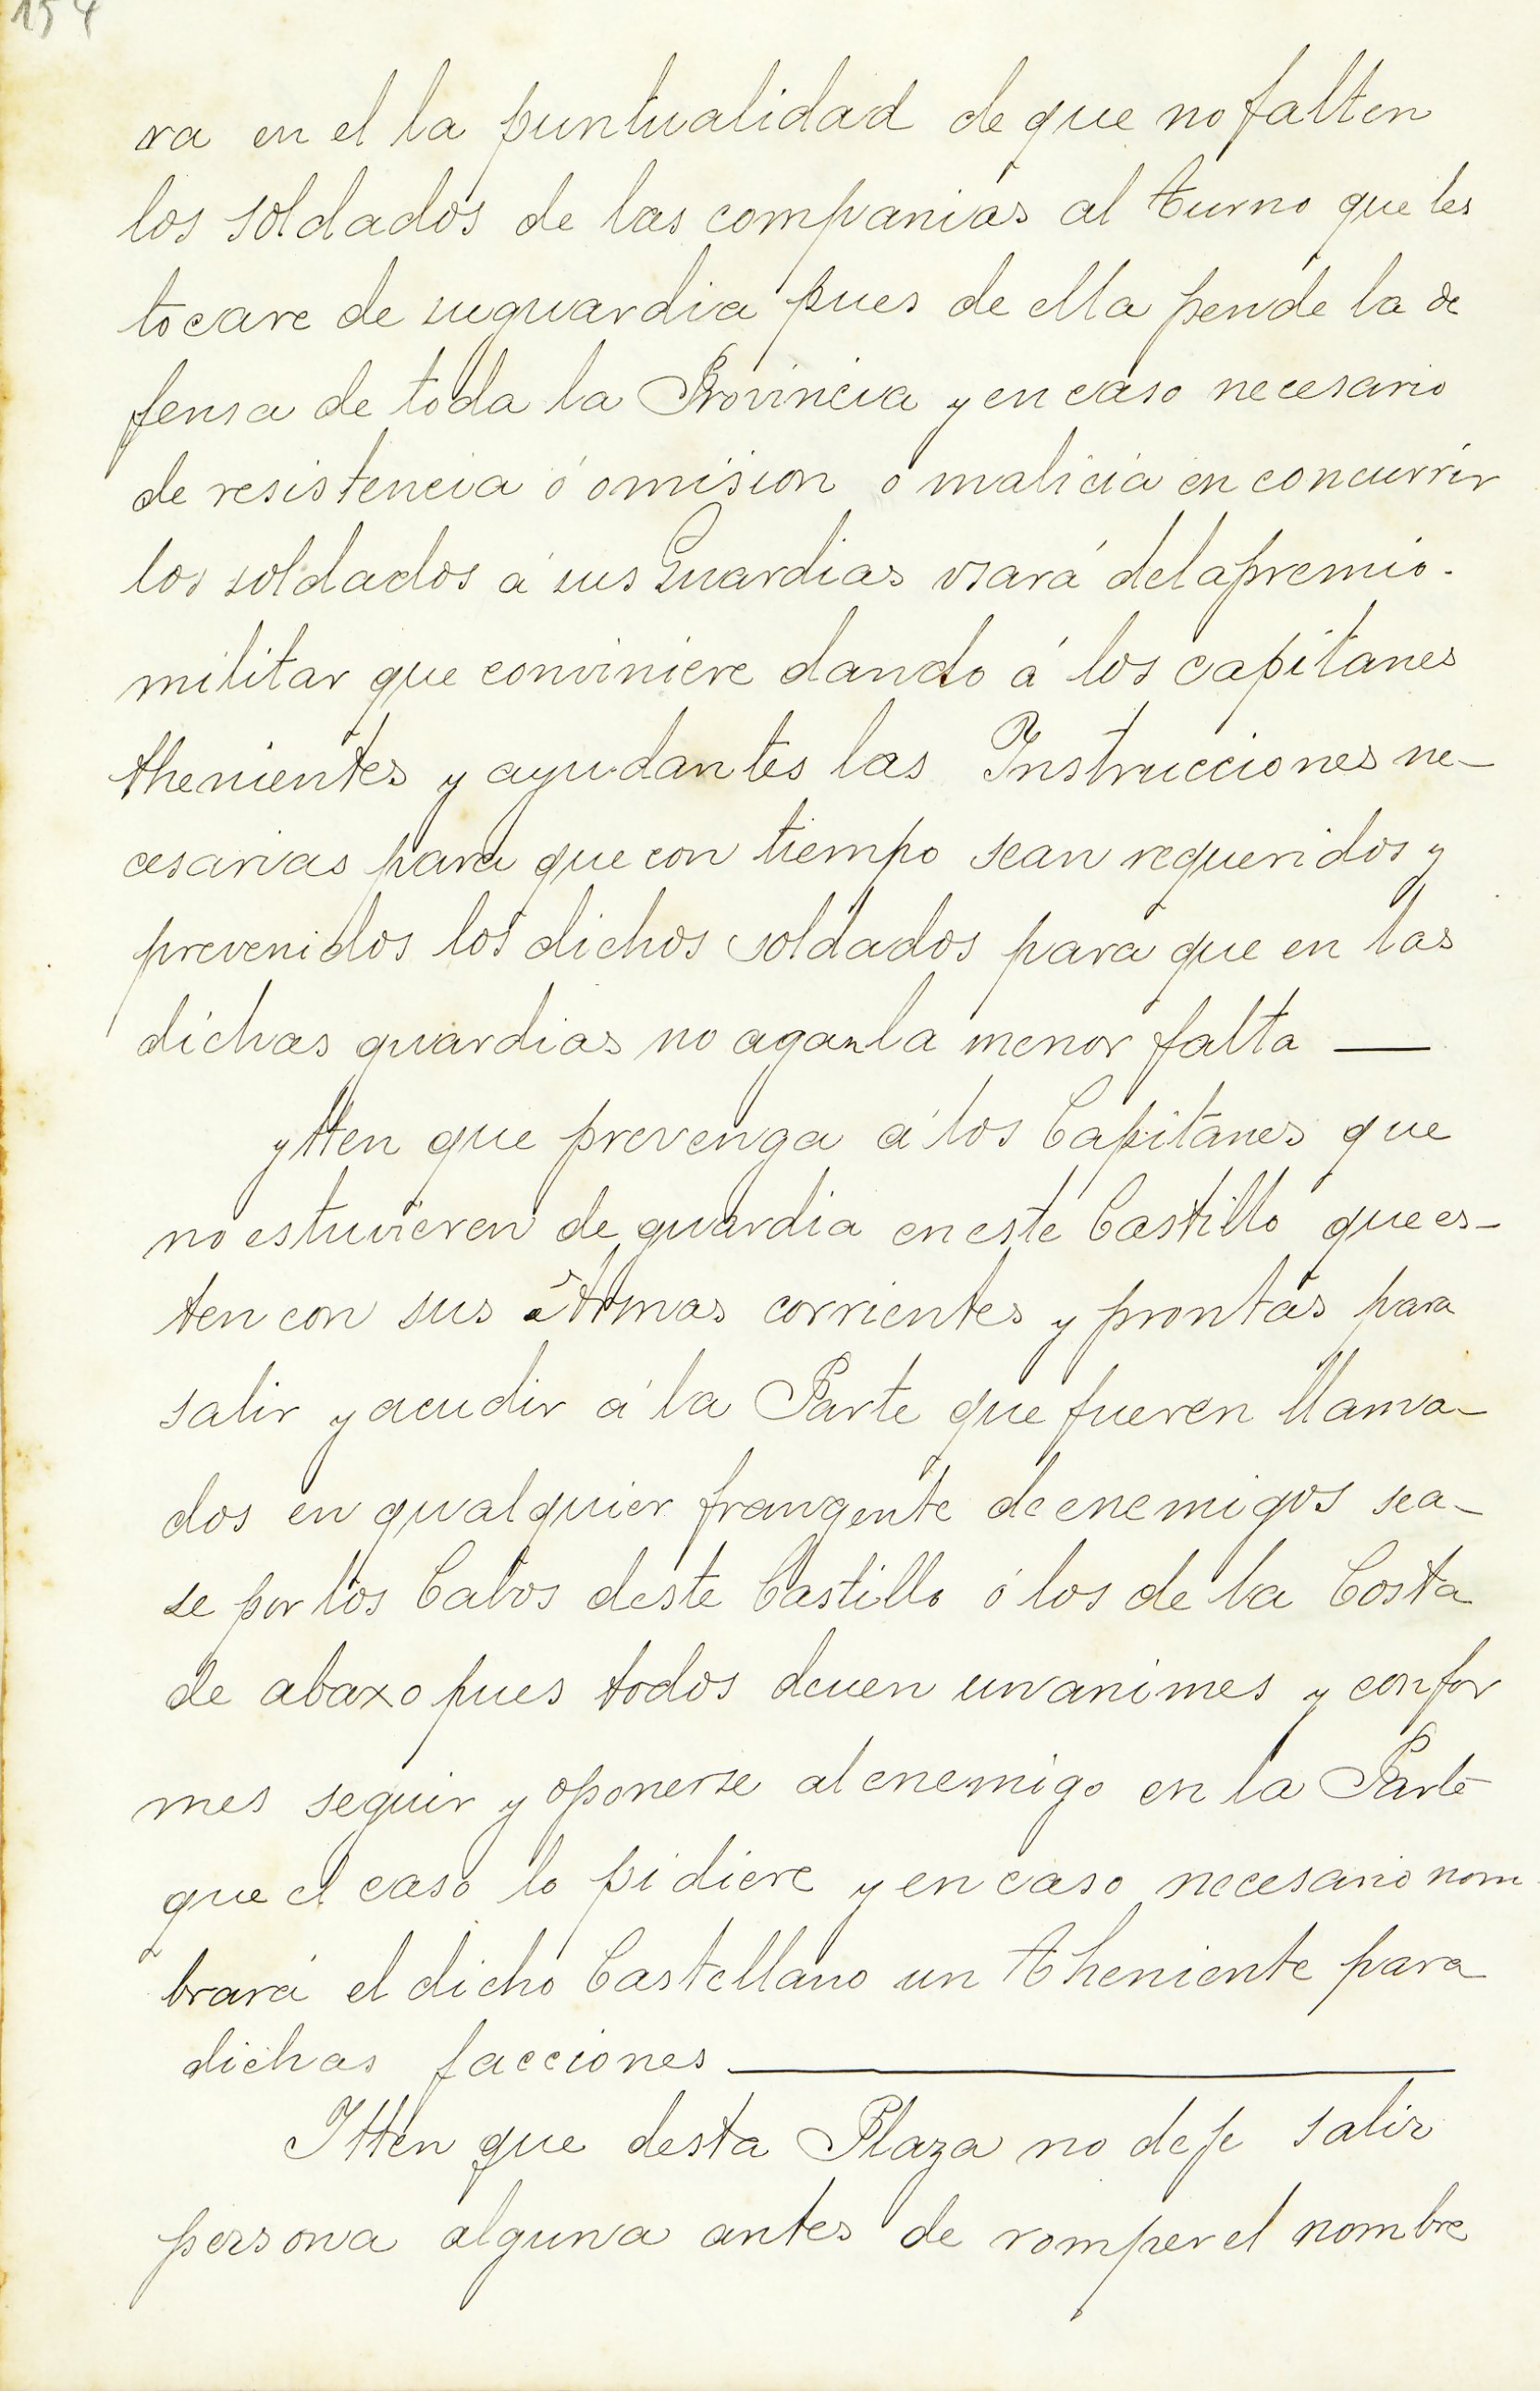 154
ra en el la puntualidad de que no falten
los soldados de las companias al turno que les
tocare de suguardia pues de ella pende la de
fensa de toda la Provincia y en caso necesario
de resistencia ó omision o malicia en concurrir
los soldados á sus Guardias usará del apremio.
militar que conviniere dando á los capitanes
thenientes y ayudantes las Instrucciones ne-
cesarias para que con tiempo sean requeridos y
prevenidos los dichos soldados para que en las
dichas guardias no agan la menor falta —
ytten que prevenga á los Capitanes que
no estuvieren de guardia en este Castillo que es-
ten con sus armas corrientes y prontas para
salir y acudir á la Parte que fueren llama-
dos en qualquier frangente de enemigos sea-
se por los Cabos deste Castillo ó los de la Costa
de abaxo pues todos deuen unanimes y confor
mes seguir y oponerse al enemigo en la Parte
que el caso lo pidiere y en caso necesario nom
brará el dicho Castellano un Theniente para
dichas facciones —
Itten que desta Plaza no deje salir
persona alguna antes de romper el nombre